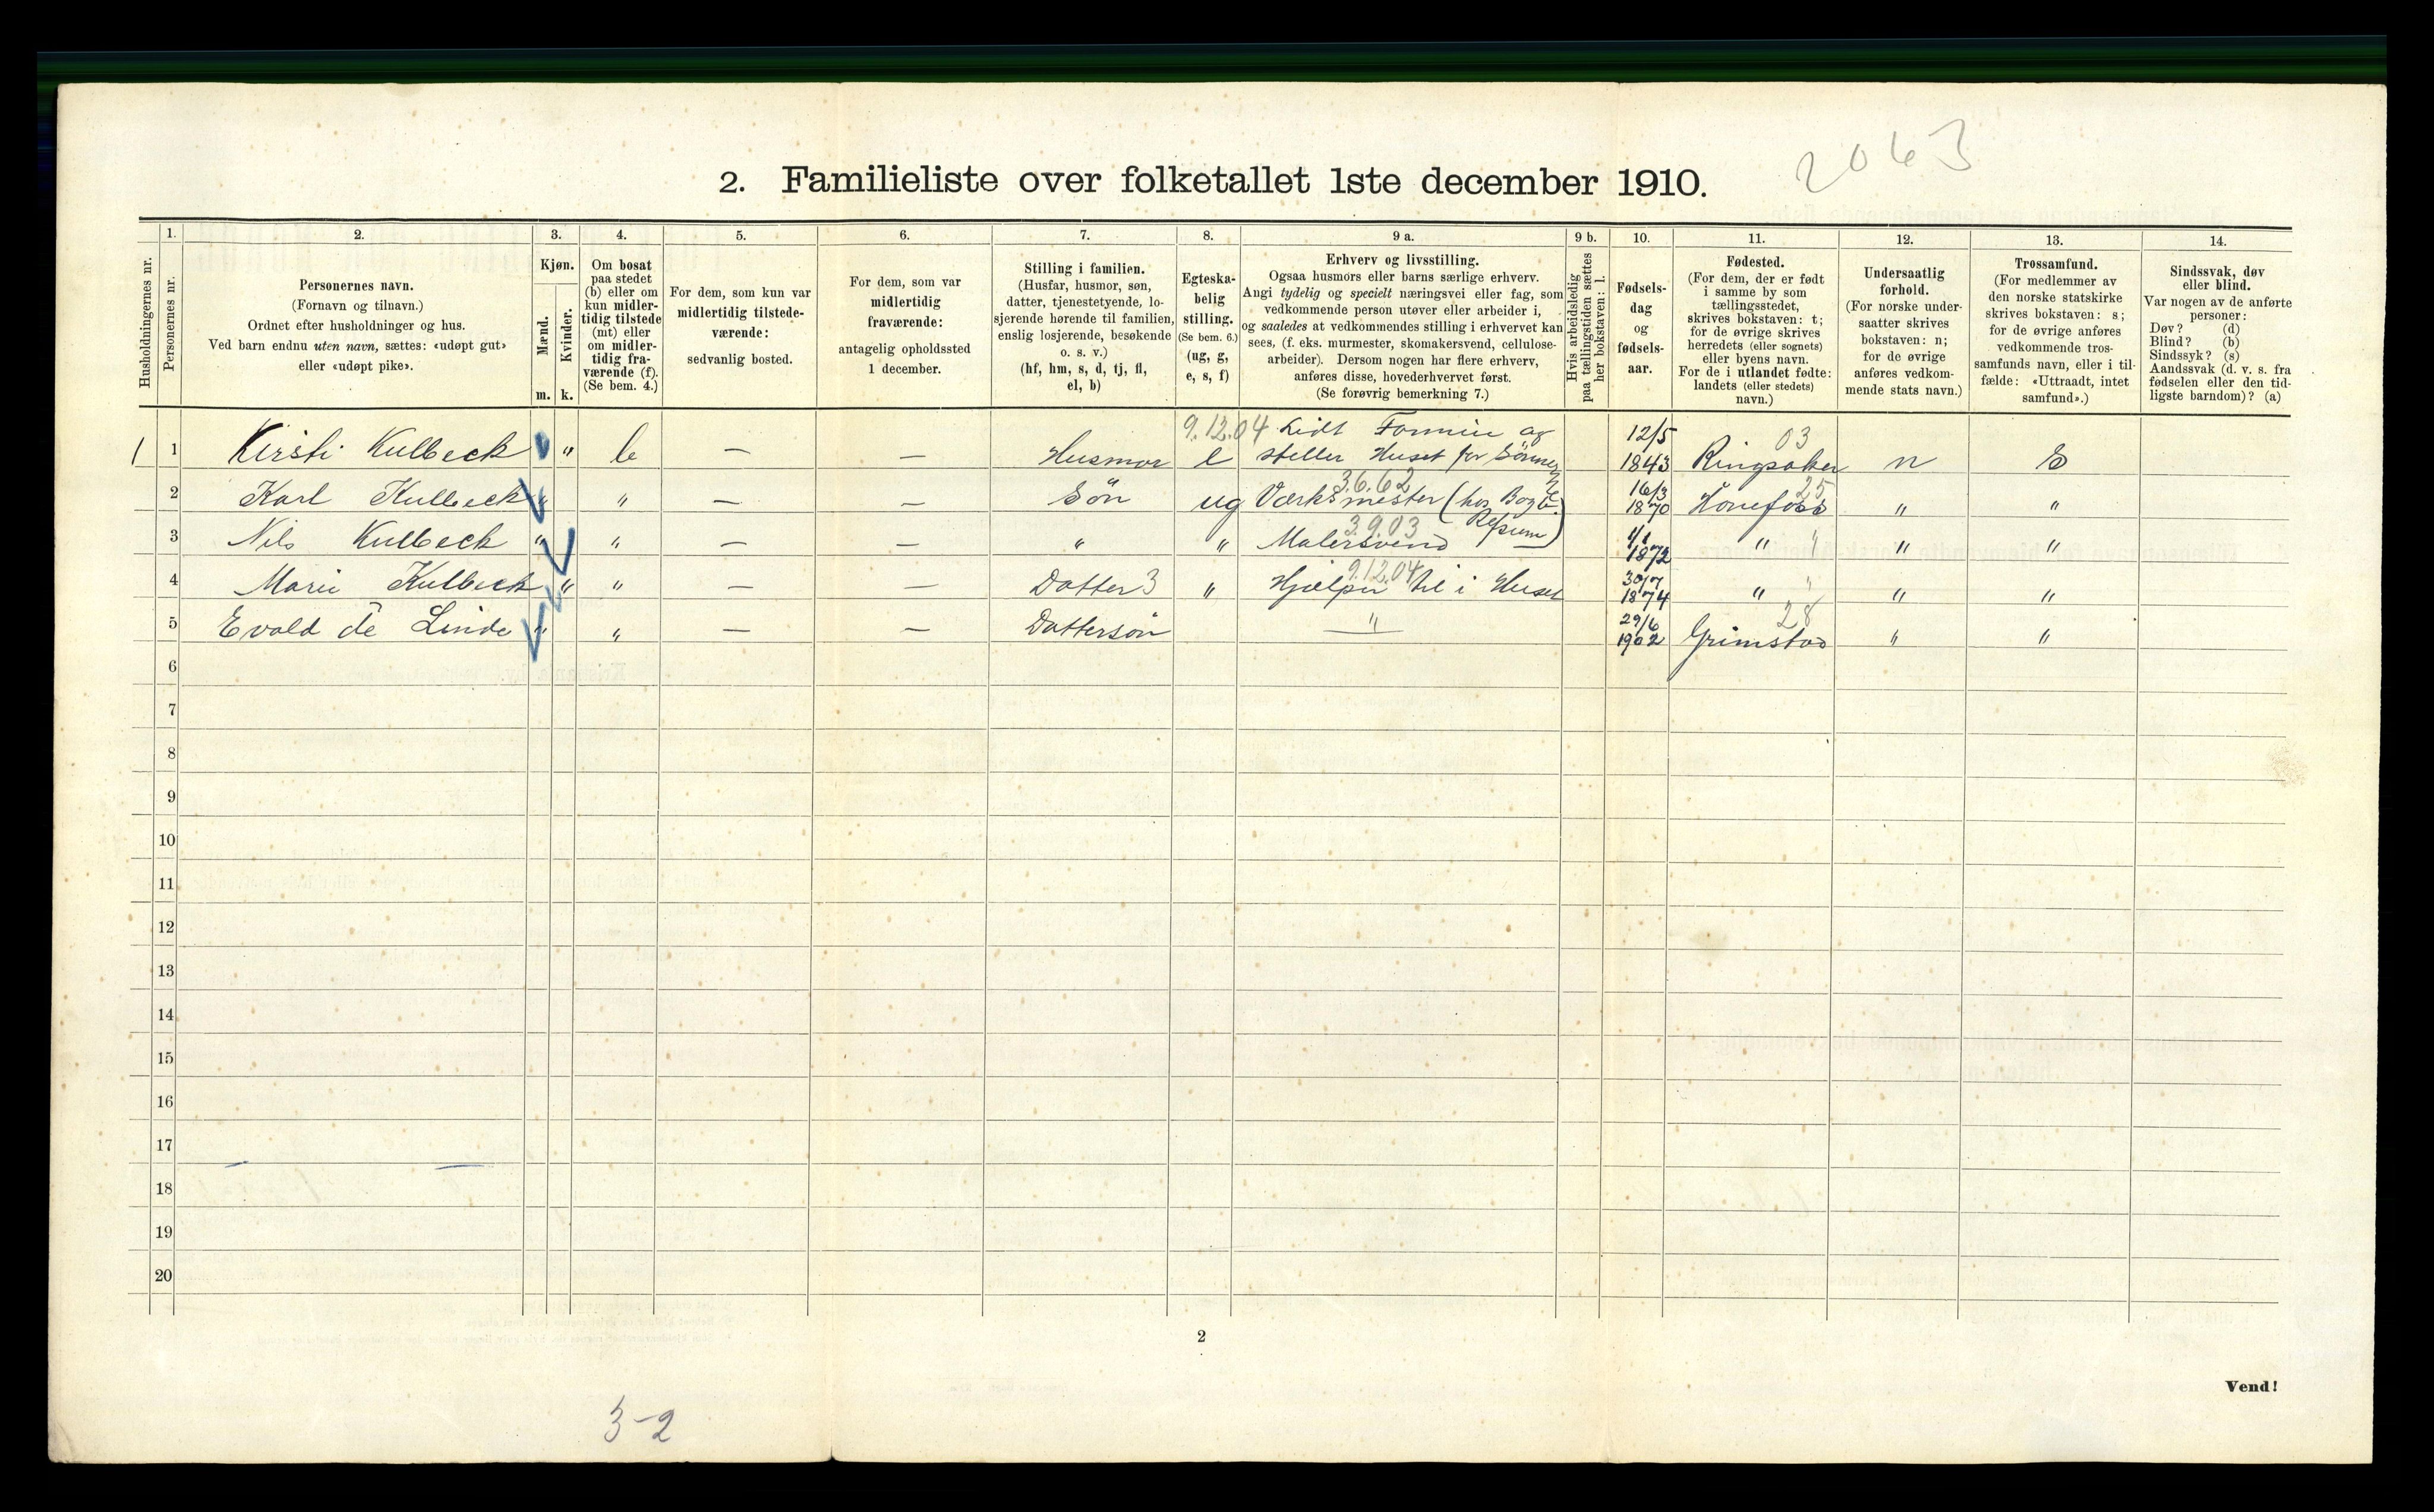 2063
2. Familieliste over folketallet 1ste december 1910.
Husholdningernes nr.
1.
Personernes nr.
2.
Personernes navn.
(Fornavn og tilnavn.)
Ordnet efter husholdninger og hus.
Ved barn endnu uten navn, sættes: «udøpt gut»
eller «udøpt pike».
3.
Kjøn.
Mænd.
Kvinder.
m. k.
4.
Om bosat
paa stedet
(b) eller om
kun midler-
tidig tilstede
(mt) eller
om midler-
tidig fra-
værende (f).
(Se bem. 4.)
5.
For dem, som kun var
midlertidig tilstede-
værende:
sedvanlig bosted.
6.
For dem, som var
midlertidig
fraværende:
antagelig opholdssted
1 december.
7.
Stilling i familien.
(Husfar, husmor, søn,
datter, tjenestetyende, lo-
sjerende hørende til familien,
enslig losjerende, besøkende
o. s. v.)
(hf, hm, s, d, tj, fl,
el, b)
8.
Egteska-
belig
stilling.
(Se bem. 6.)
(ug, g,
e, s, f)
9 a.
Erhverv og livsstilling.
Ogsaa husmors eller barns særlige erhverv.
Angi tydelig og specielt næringsvei eller fag, som
vedkommende person utøver eller arbeider i,
og saaledes at vedkommendes stilling i erhvervet kan
sees, (f. eks. murmester, skomakersvend, cellulose-
arbeider). Dersom nogen har flere erhverv,
anføres disse, hovederhvervet først.
(Se forøvrig bemerkning 7.)
9 b.
Hvis arbeidsledig
paa tællingstiden sættes
her bokstaven: l.
10.
Fødsels-
dag
og
fødsels-
aar.
11.
Fødested.
(For dem, der er født
i samme by som
tællingsstedet,
skrives bokstaven: t;
for de øvrige skrives
herredets (eller sognets)
eller byens navn.
For de i utlandet fødte:
landets (eller stedets)
navn.)
12.
Undersaatlig
forhold.
(For norske under-
saatter skrives
bokstaven: n;
for de øvrige
anføres vedkom-
mende stats navn.)
13.
Trossamfund.
(For medlemmer av
den norske statskirke
skrives bokstaven: s;
for de øvrige anføres
vedkommende tros-
samfunds navn, eller i til-
fælde: «Uttraadt, intet
samfund».)
14.
Sindssvak, døv
eller blind.
Var nogen av de anførte
personer:
Døv? (d)
Blind? (b)
Sindssyk? (s)
Aandssvak (d. v. s. fra
fødselen eller den tid-
ligste barndom)? (a)
1 1 Kirsti Kulbeck " b — — Husmor e 9.12.04 Lidt Formue og steller Huset for Sønner 12/5 1843 Ringsaker 03 n S
2 Karl Kulbeck " " — — Søn ug 3.6.62 Værksmester (hos 16/3 1870 Hönefoss 25 " "
3 Nils Kulbeck " " — — " " 3.9.03 Malersvend 1/1 1872 " " " "
4 Marie Kulbeck " " — — Datter 3 " 9.12.04 Hjælper til i Huset 30/7 1874 " " " "
5 Evald de Linde " " — — Dattersön " 29/6 1902 Grimstad 28 " "
6
7
8
9
10
11
12
13
14
15
16
17
18
19
20
2
Vend!
3-2